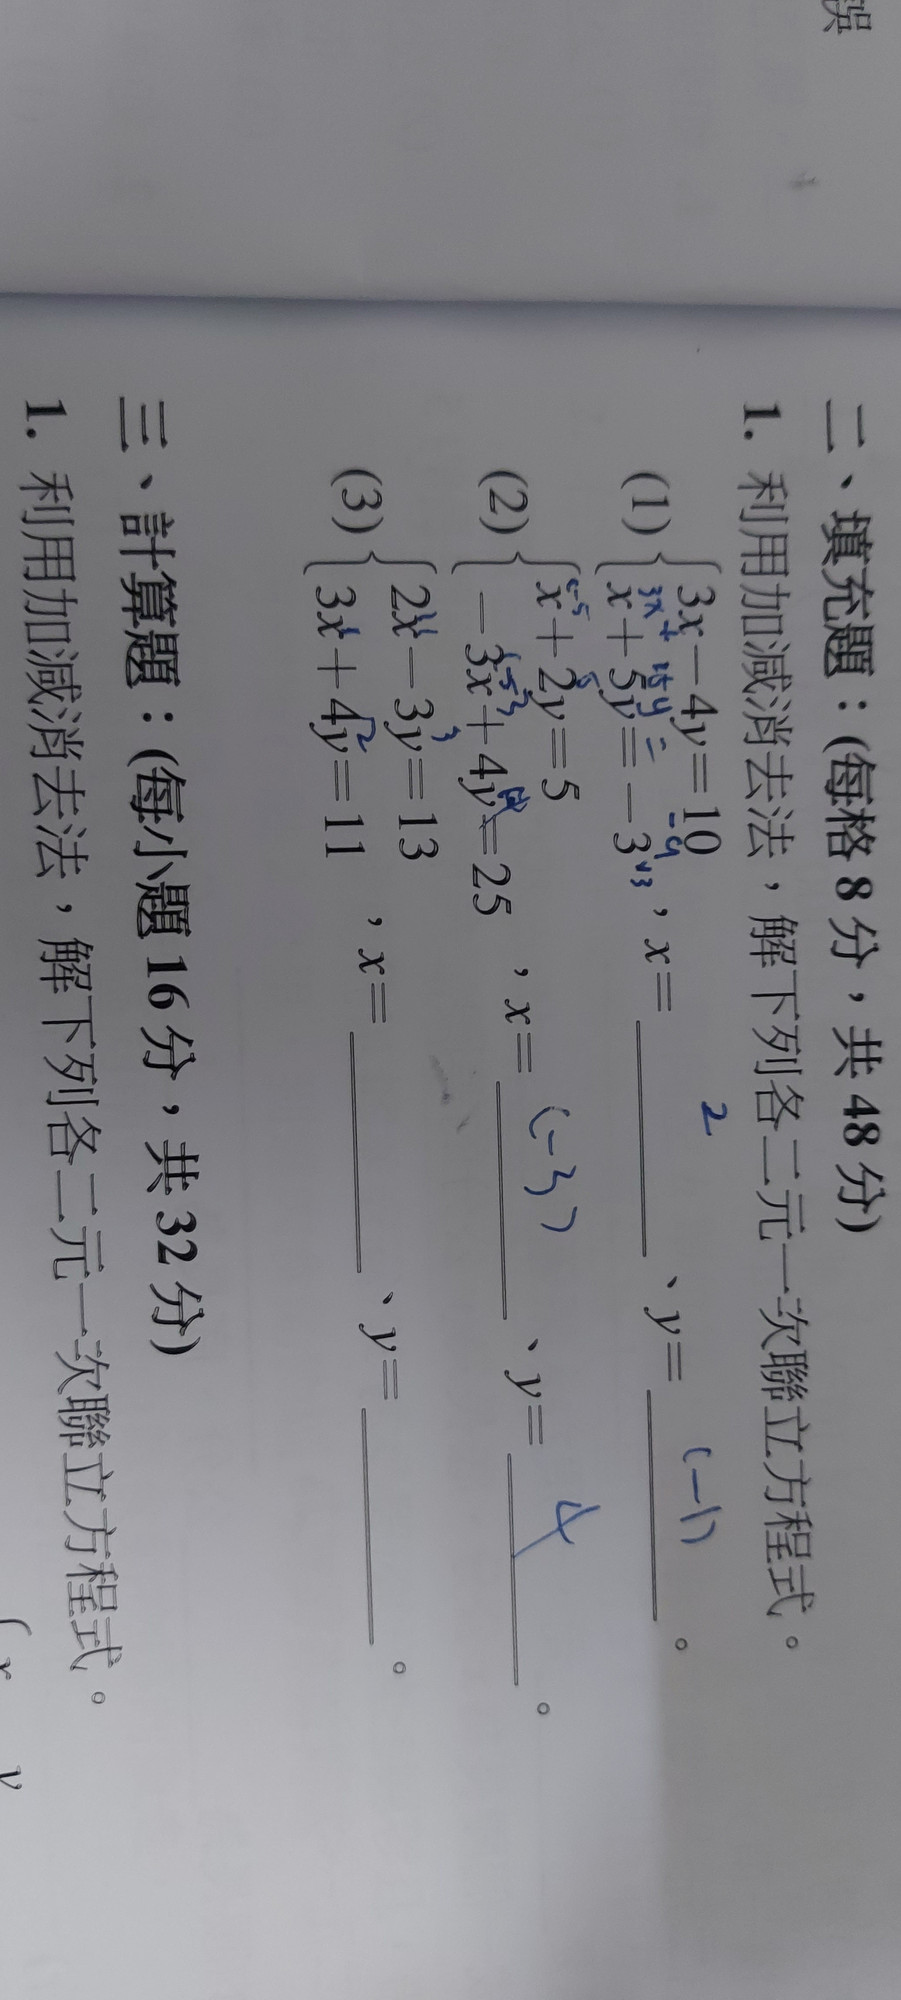 誤
二、填充題：(每格 8 分，共 48 分)
1. 利用加減消去法，解下列各二元一次聯立方程式。
(1) { 3x－4y＝10
3x + 15y = -9
x＋5y＝－3 ，x＝ 2 、y＝ (-1) 。
×3
(2) { x＋2y＝5
－3x＋4y＝25 ，x＝ (-3) 、y＝ 4 。
(3) { 2x－3y＝13
3x＋4y＝11 ，x＝ 、y＝ 。
三、計算題：(每小題 16 分，共 32 分)
1. 利用加減消去法，解下列各二元一次聯立方程式。
x y